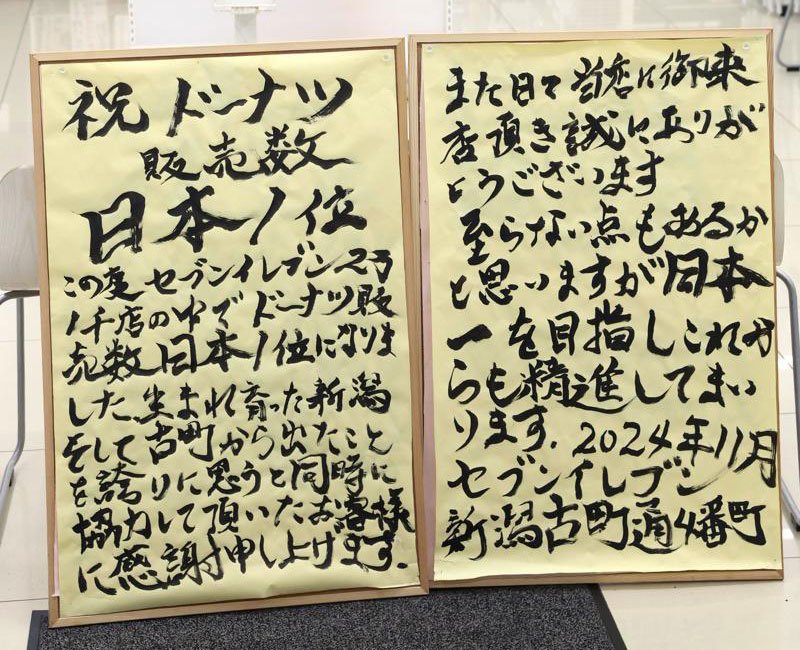 祝 ドーナツ
販売数
日本1位
この度セブンイレブン2万
1千店の中でドーナツ販
売数日本1位になりま
した生まれ育った新潟
そして古町から出たこと
を誇りに思うと同時に
協力して頂いたお客様
に感謝申し上げます.
また日々当店に御来
店頂き誠にありが
とうございます
至らない点もあるか
と思いますが日本
一を目指しこれか
らも精進してまい
ります. 2024年11月
セブンイレブン
新潟古町通4番町